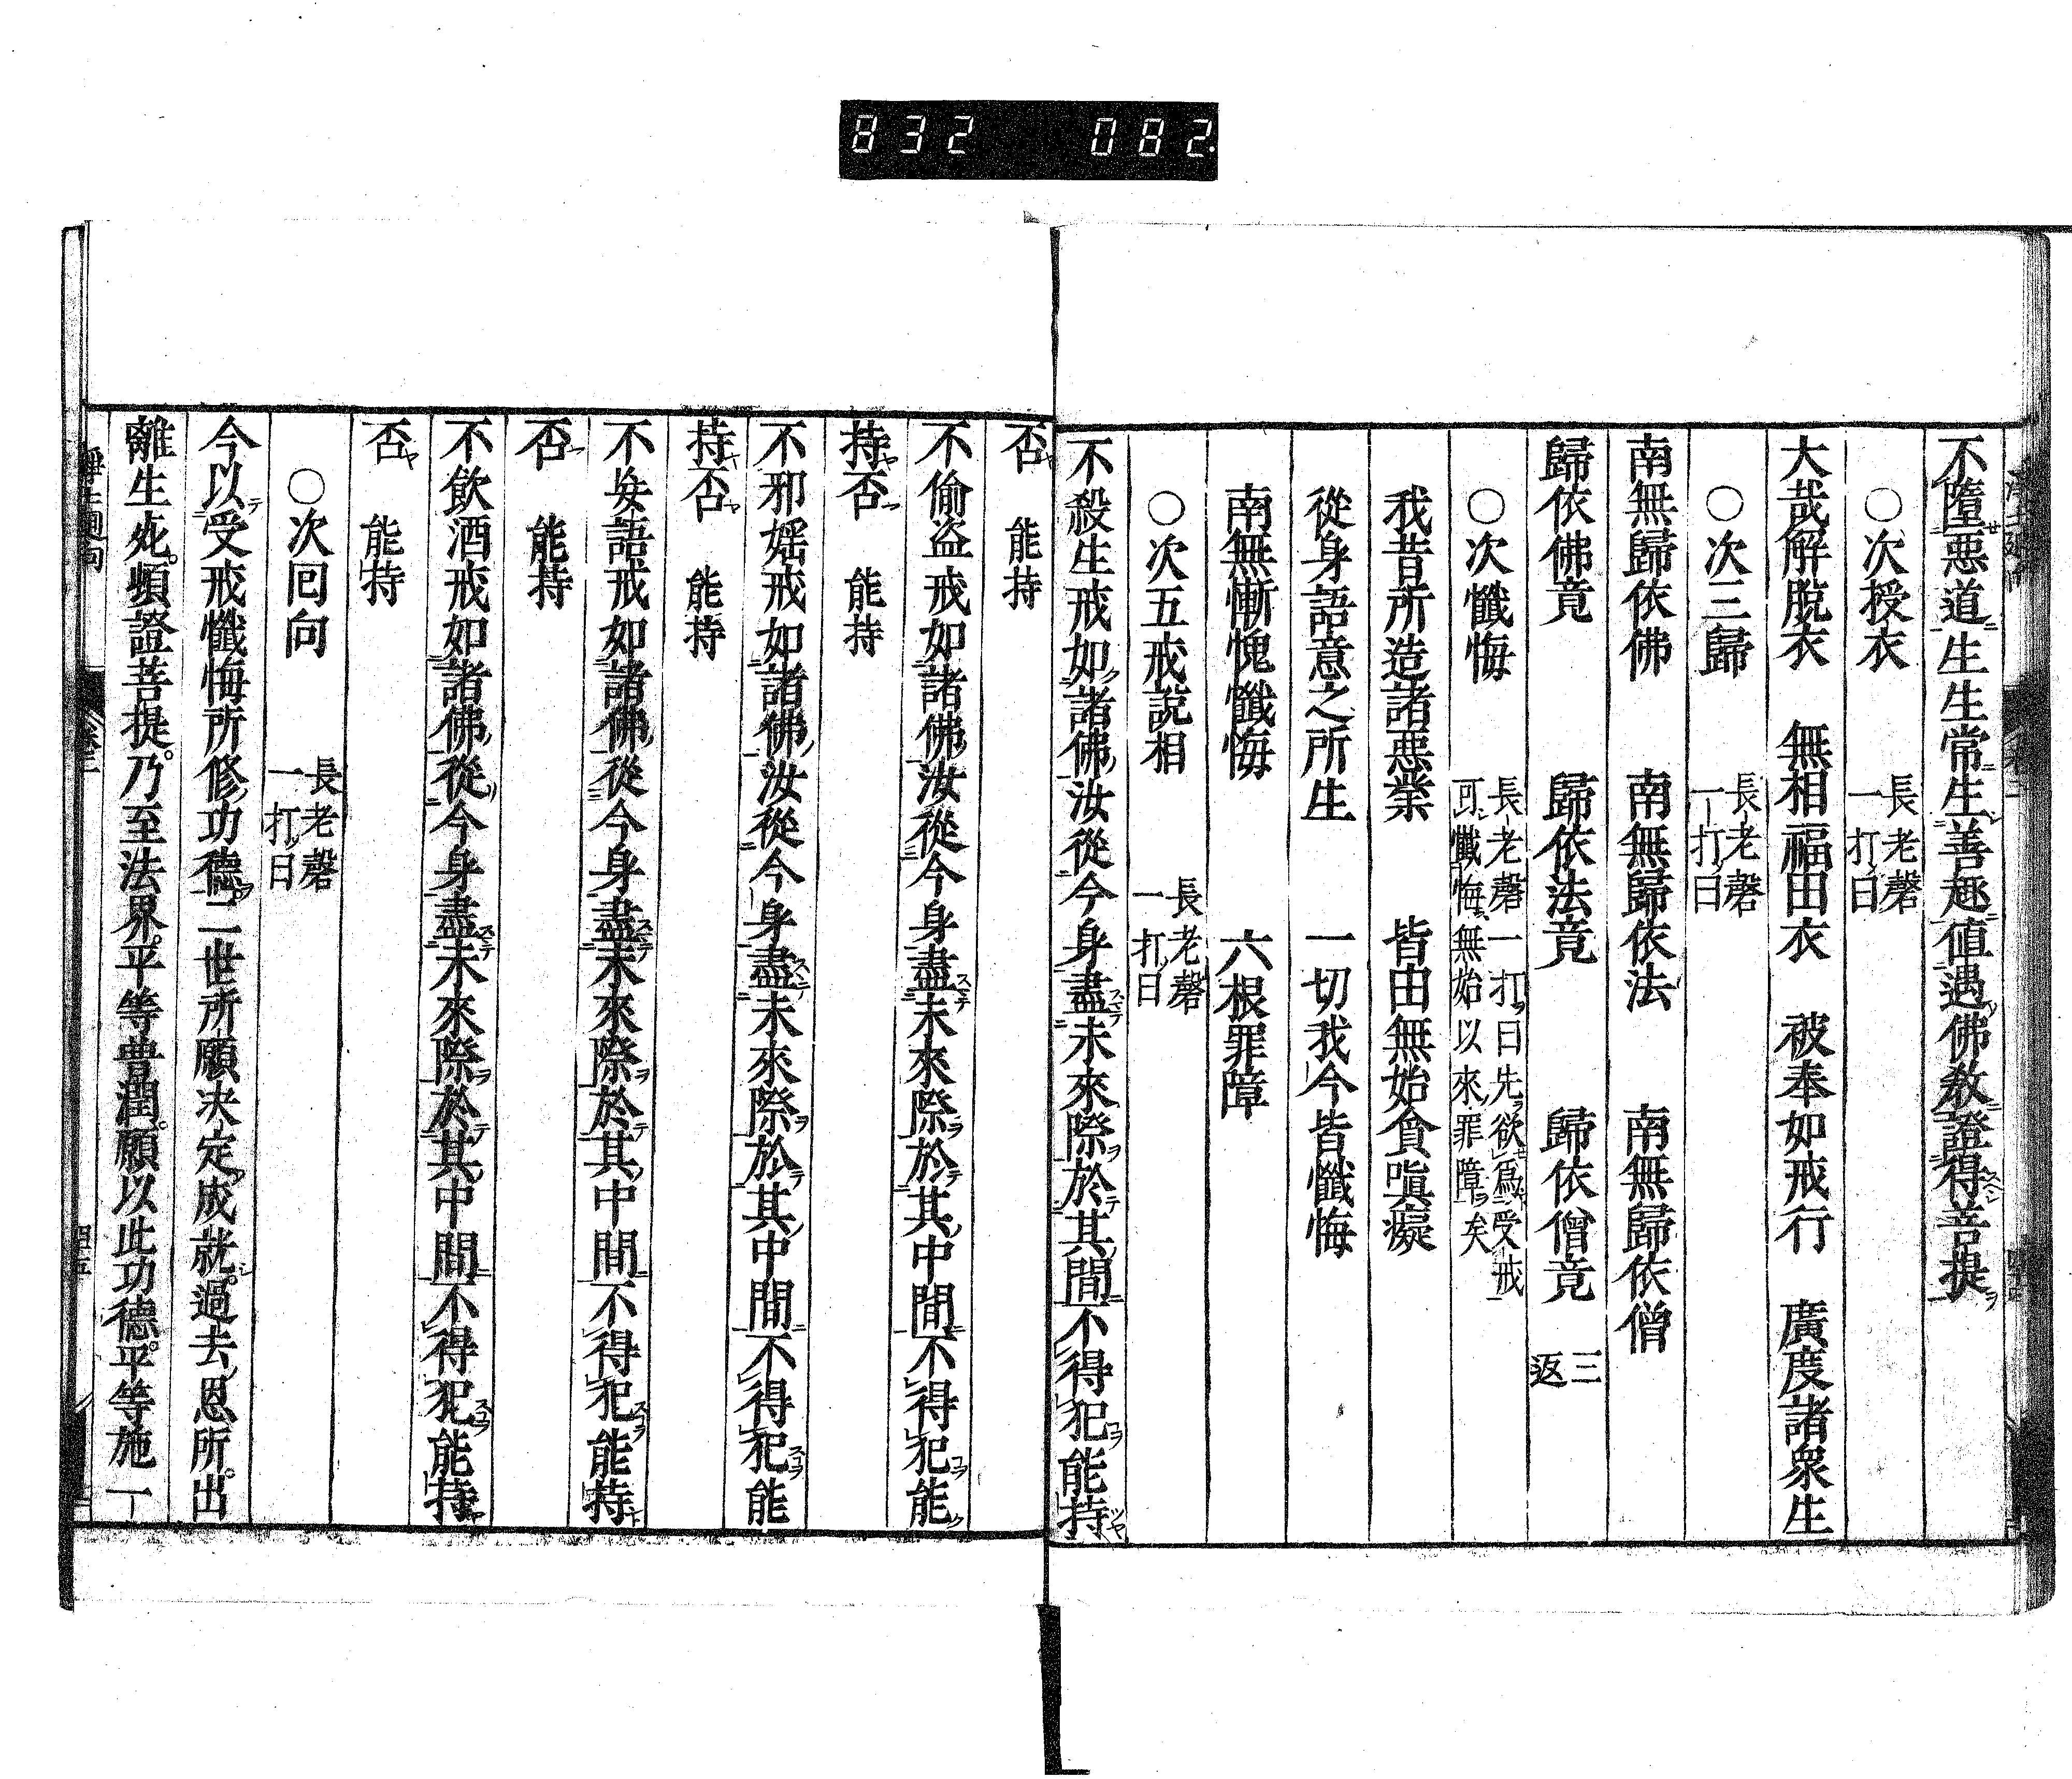 832 082
不墮惡道生生常生善趣値遇佛教證得菩提
○次授衣 長老磬一打曰
大哉解脫衣 無相福田衣 被奉如戒行 廣度諸衆生
○次三歸 長老磬一打曰
南無歸依佛 南無歸依法 南無歸依僧
歸依佛竟 歸依法竟 歸依僧竟 三返
○次懺悔 長老磬一打曰先欲爲受戒可懺悔無始以來罪障矣
我昔所造諸惡業 皆由無始貪嗔癡
從身語意之所生 一切我今皆懺悔
南無慚愧懺悔 六根罪障
○次五戒說相 長老磬一打曰
不殺生戒如諸佛汝從今身盡未來際於其間不得犯能持
否 能持
不偷盜戒如諸佛汝從今身盡未來際於其中間不得犯能
持否 能持
不邪婬戒如諸佛汝從今身盡未來際於其中間不得犯能
持否 能持
不妄語戒如諸佛從今身盡未來際於其中間不得犯能持
否 能持
不飲酒戒如諸佛從今身盡未來際於其中間不得犯能持
否 能持
○次回向 長老磬一打曰
今以受戒懺悔所修功德二世所願決定成就過去恩所出
離生死頻證菩提乃至法界平等普潤願以此功德平等施一